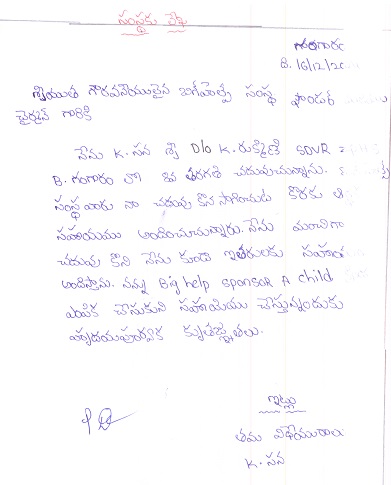 సంస్థకు లేఖ
గంగారం
B. 16/12/20
శ్రీయుత గౌరవనీయులైన బిగ్‌హెల్ప్ సంస్థ ఫౌండర్
చైర్మన్ గారికి
నేను K. సన శ్రీ D/o K. రుక్మిణి SDVR
B. గంగారం లో 8వ తరగతి చదువుచున్నాను.
సంస్థ వారు నా చదువు కొన సాగించుట కొరకు
సహాయము అందించుచున్నారు. నేను మంచిగా
చదువు కొని నేను కూడా ఇతరులకు సహాయం
అందిస్తాను. నన్ను Big help sponsor A child
ఎంపిక చేసుకుని సహాయము చేస్తున్నందుకు
హృదయపూర్వక కృతజ్ఞతలు.
ఇట్లు
తమ విధేయురాలు
K. సన